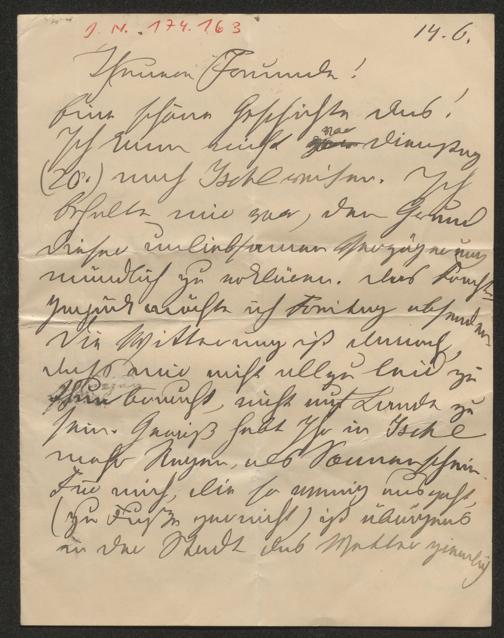 J. N. 174.163
14. 6.
Theuerer Freund!
Eine schöne Geschichte das!
Ich kann nicht vor Dienstag
(20.) nach Ischl reisen. Ich
behalte mir vor, den Grund
dieser unliebsamen Verzögerung
mündlich zu erklären. Das
möchte ich Freitag absenden.
Die Witterung ist darnach,
daß mir nicht allzu leid zu
sein braucht, nicht auf Lande zu
sein. Gewiß habt Ihr in Ischl
mehr Regen, als Sonnenschein.
Für mich, die so wenig ausgeht,
(zu Fuß gar nicht) ist übrigens
in der Stadt das Wetter ziemlich